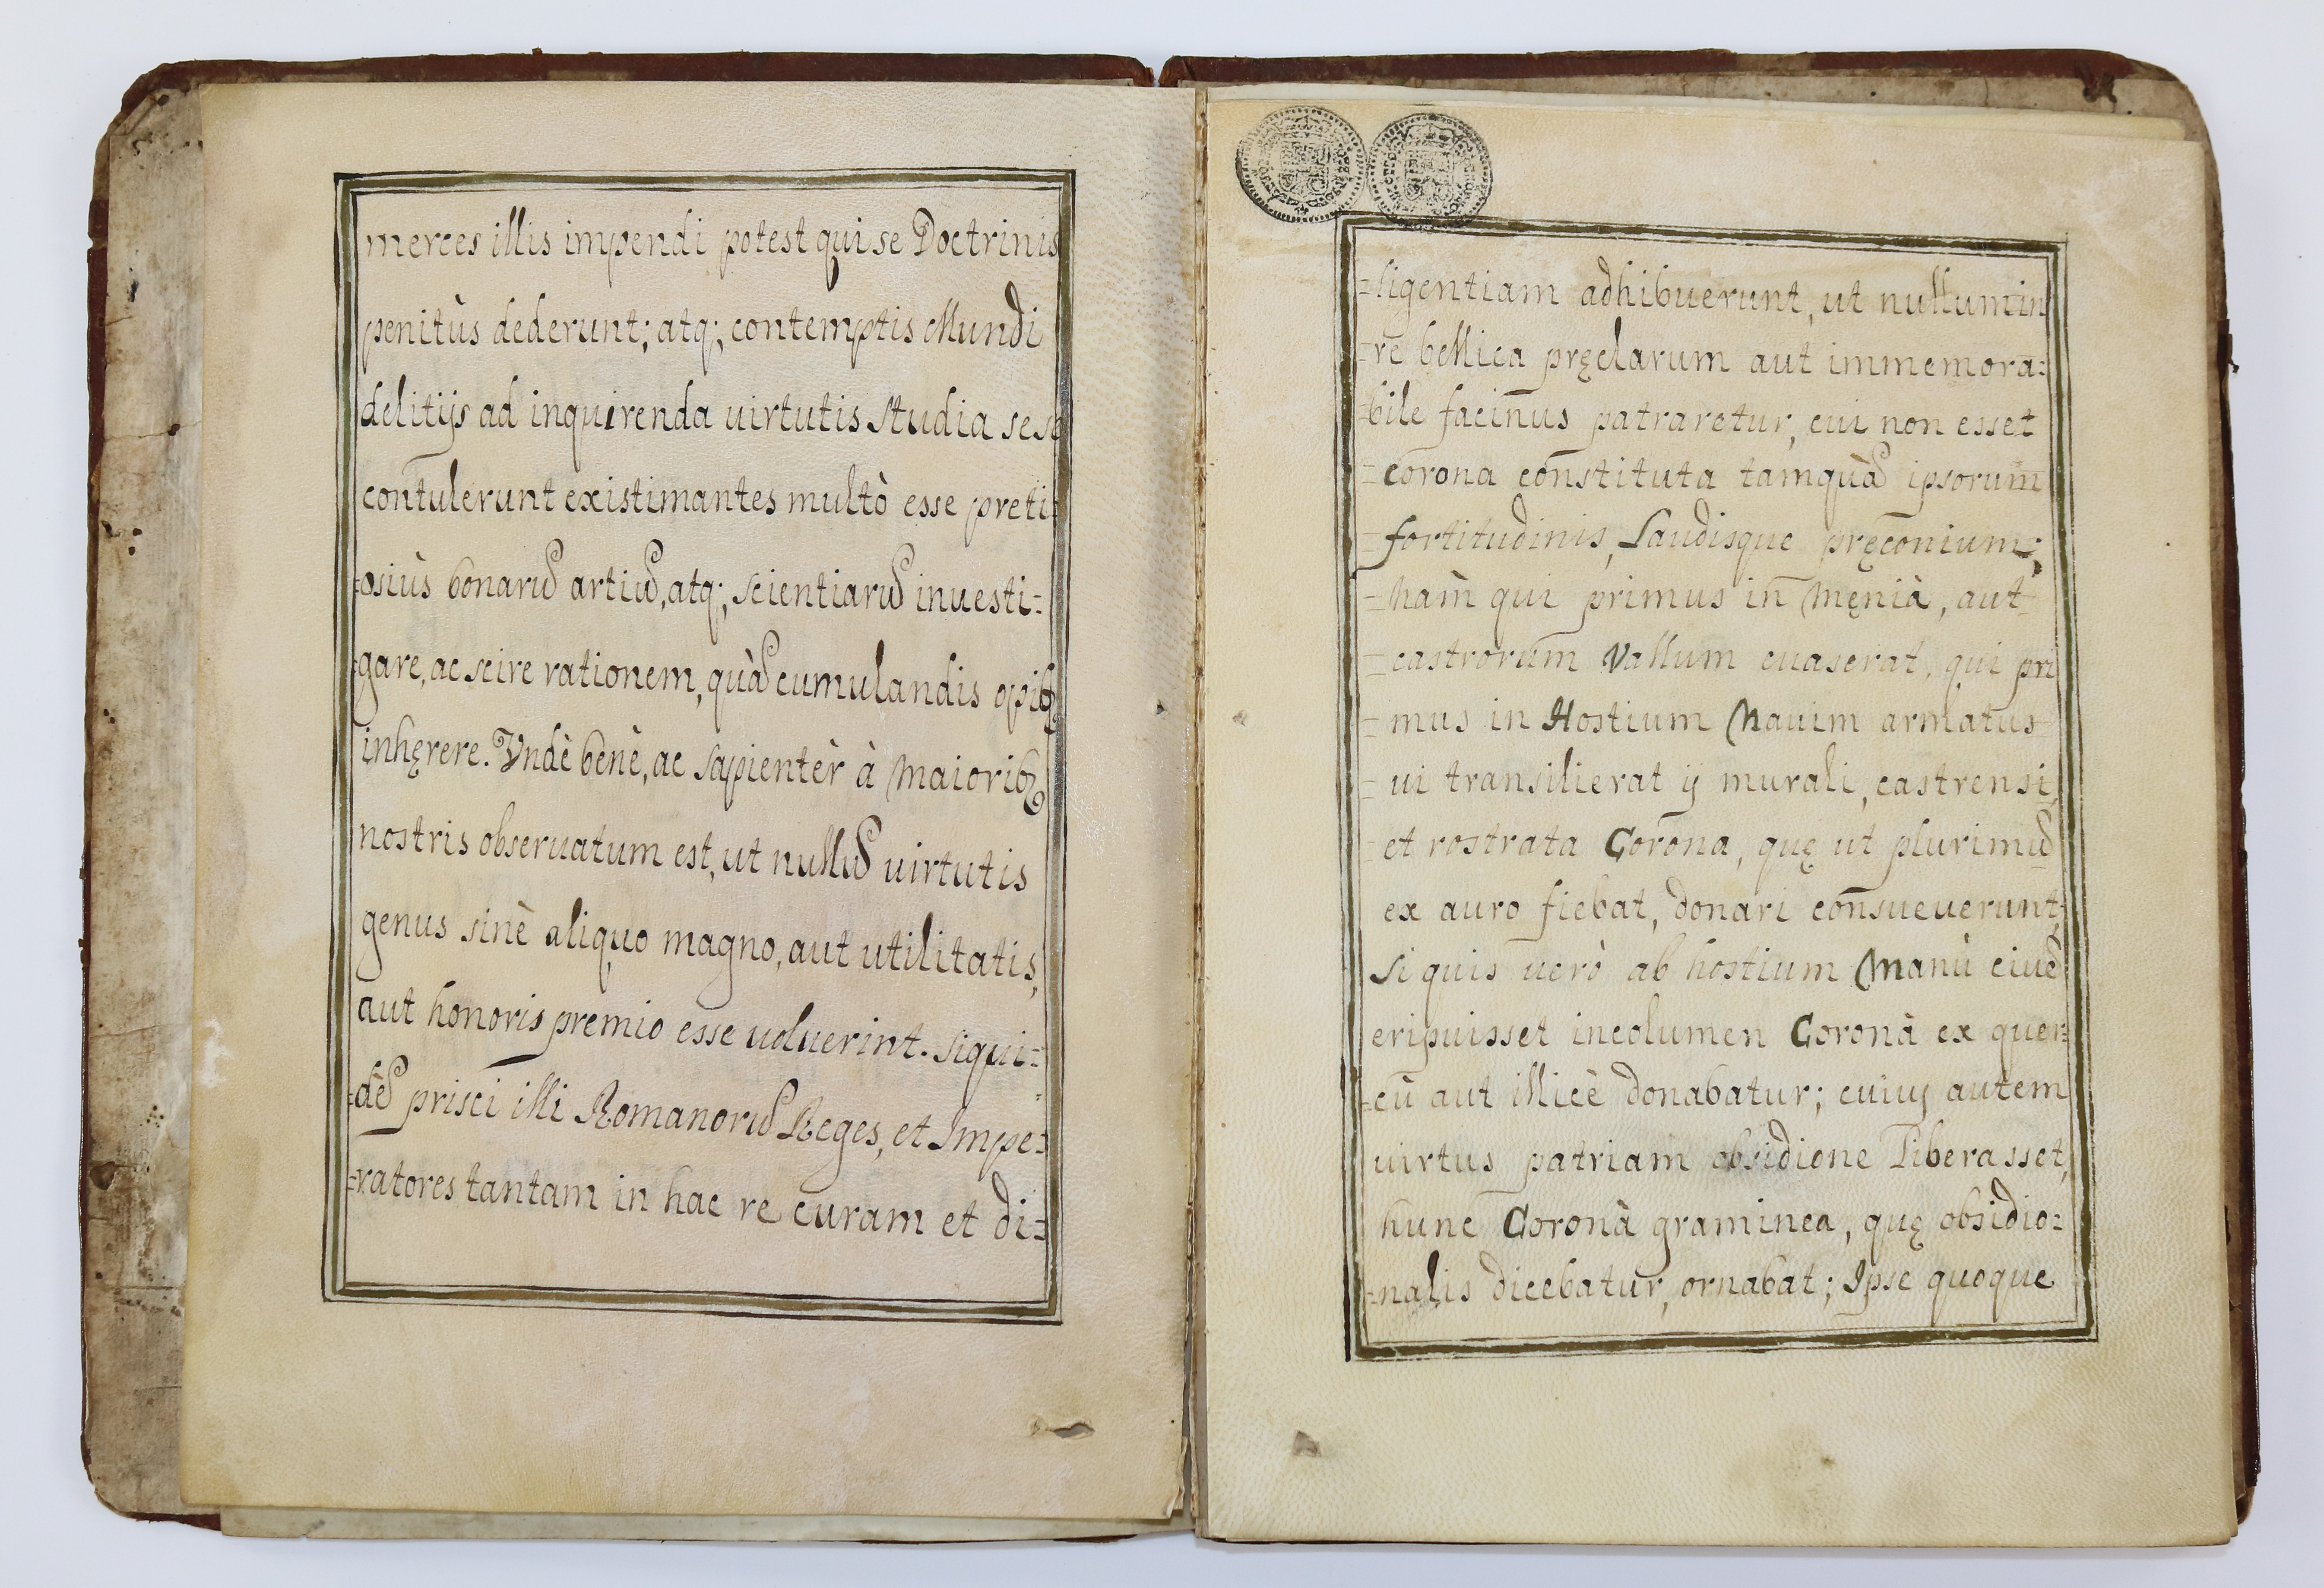 merces illis impendi potest qui se Doctrinis
penitùs dederunt; atq; contemptis Mundi
delitijs ad inquirenda uirtutis studia sese
contulerunt existimantes multò esse preti=
=osiùs bonarũ artiũ, atq; scientiarũ inuesti=
=gare, ac scire rationem, quã cumulandis opib9
inhęrere. Vndè benè, ac sapientèr à Maiorib9
nostris obseruatum est, ut nullũ uirtutis
genus sinè aliquo magno, aut utilitatis,
aut honoris premio esse uoluerint. siqui=
=dẽ prisci illi Romanorũ Reges, et Impe=
=ratores tantam in hac re curam et di=
=ligentiam adhibuerunt, ut nullum in
=re bellica pręclarum aut immemora=
=bile facinus patraretur, cui non esset
=corona constituta tamquã ipsorum
=fortitudinis, Laudisque pręconium;
=Nam qui primus in Męnià, aut
=castrorum Vallum euaserat, qui pri
=mus in Hostium Nauim armatus
=ui transilierat ij murali, castrensi,
et rostrata Corona, quę ut plurimũ
ex auro fiebat, donari consueuerunt,
Si quis uerò ab hostium Manù ciuẽ
eripuisset incolumen Coronà ex quer=
=cù aut illicè donabatur; cuiuș autem
uirtus patriam obsidione Liberasset,
hunc Coronà graminea, quę obsidio=
=nalis dicebatur, ornabat; Ipse quoque